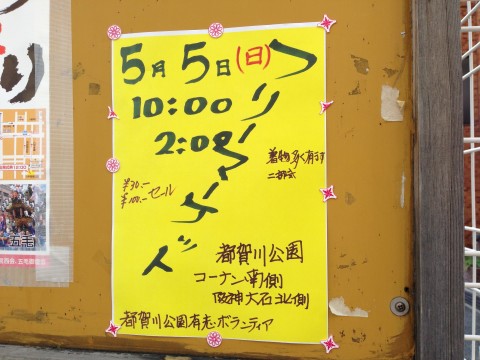 5月5日(日)
10:00
2:00
フリーマーケット
着物多く有ます
¥30.-
¥100.-セール
都賀川公園
コーナン南側
阪神大石北側
都賀川公園有志ボランティア
五毛